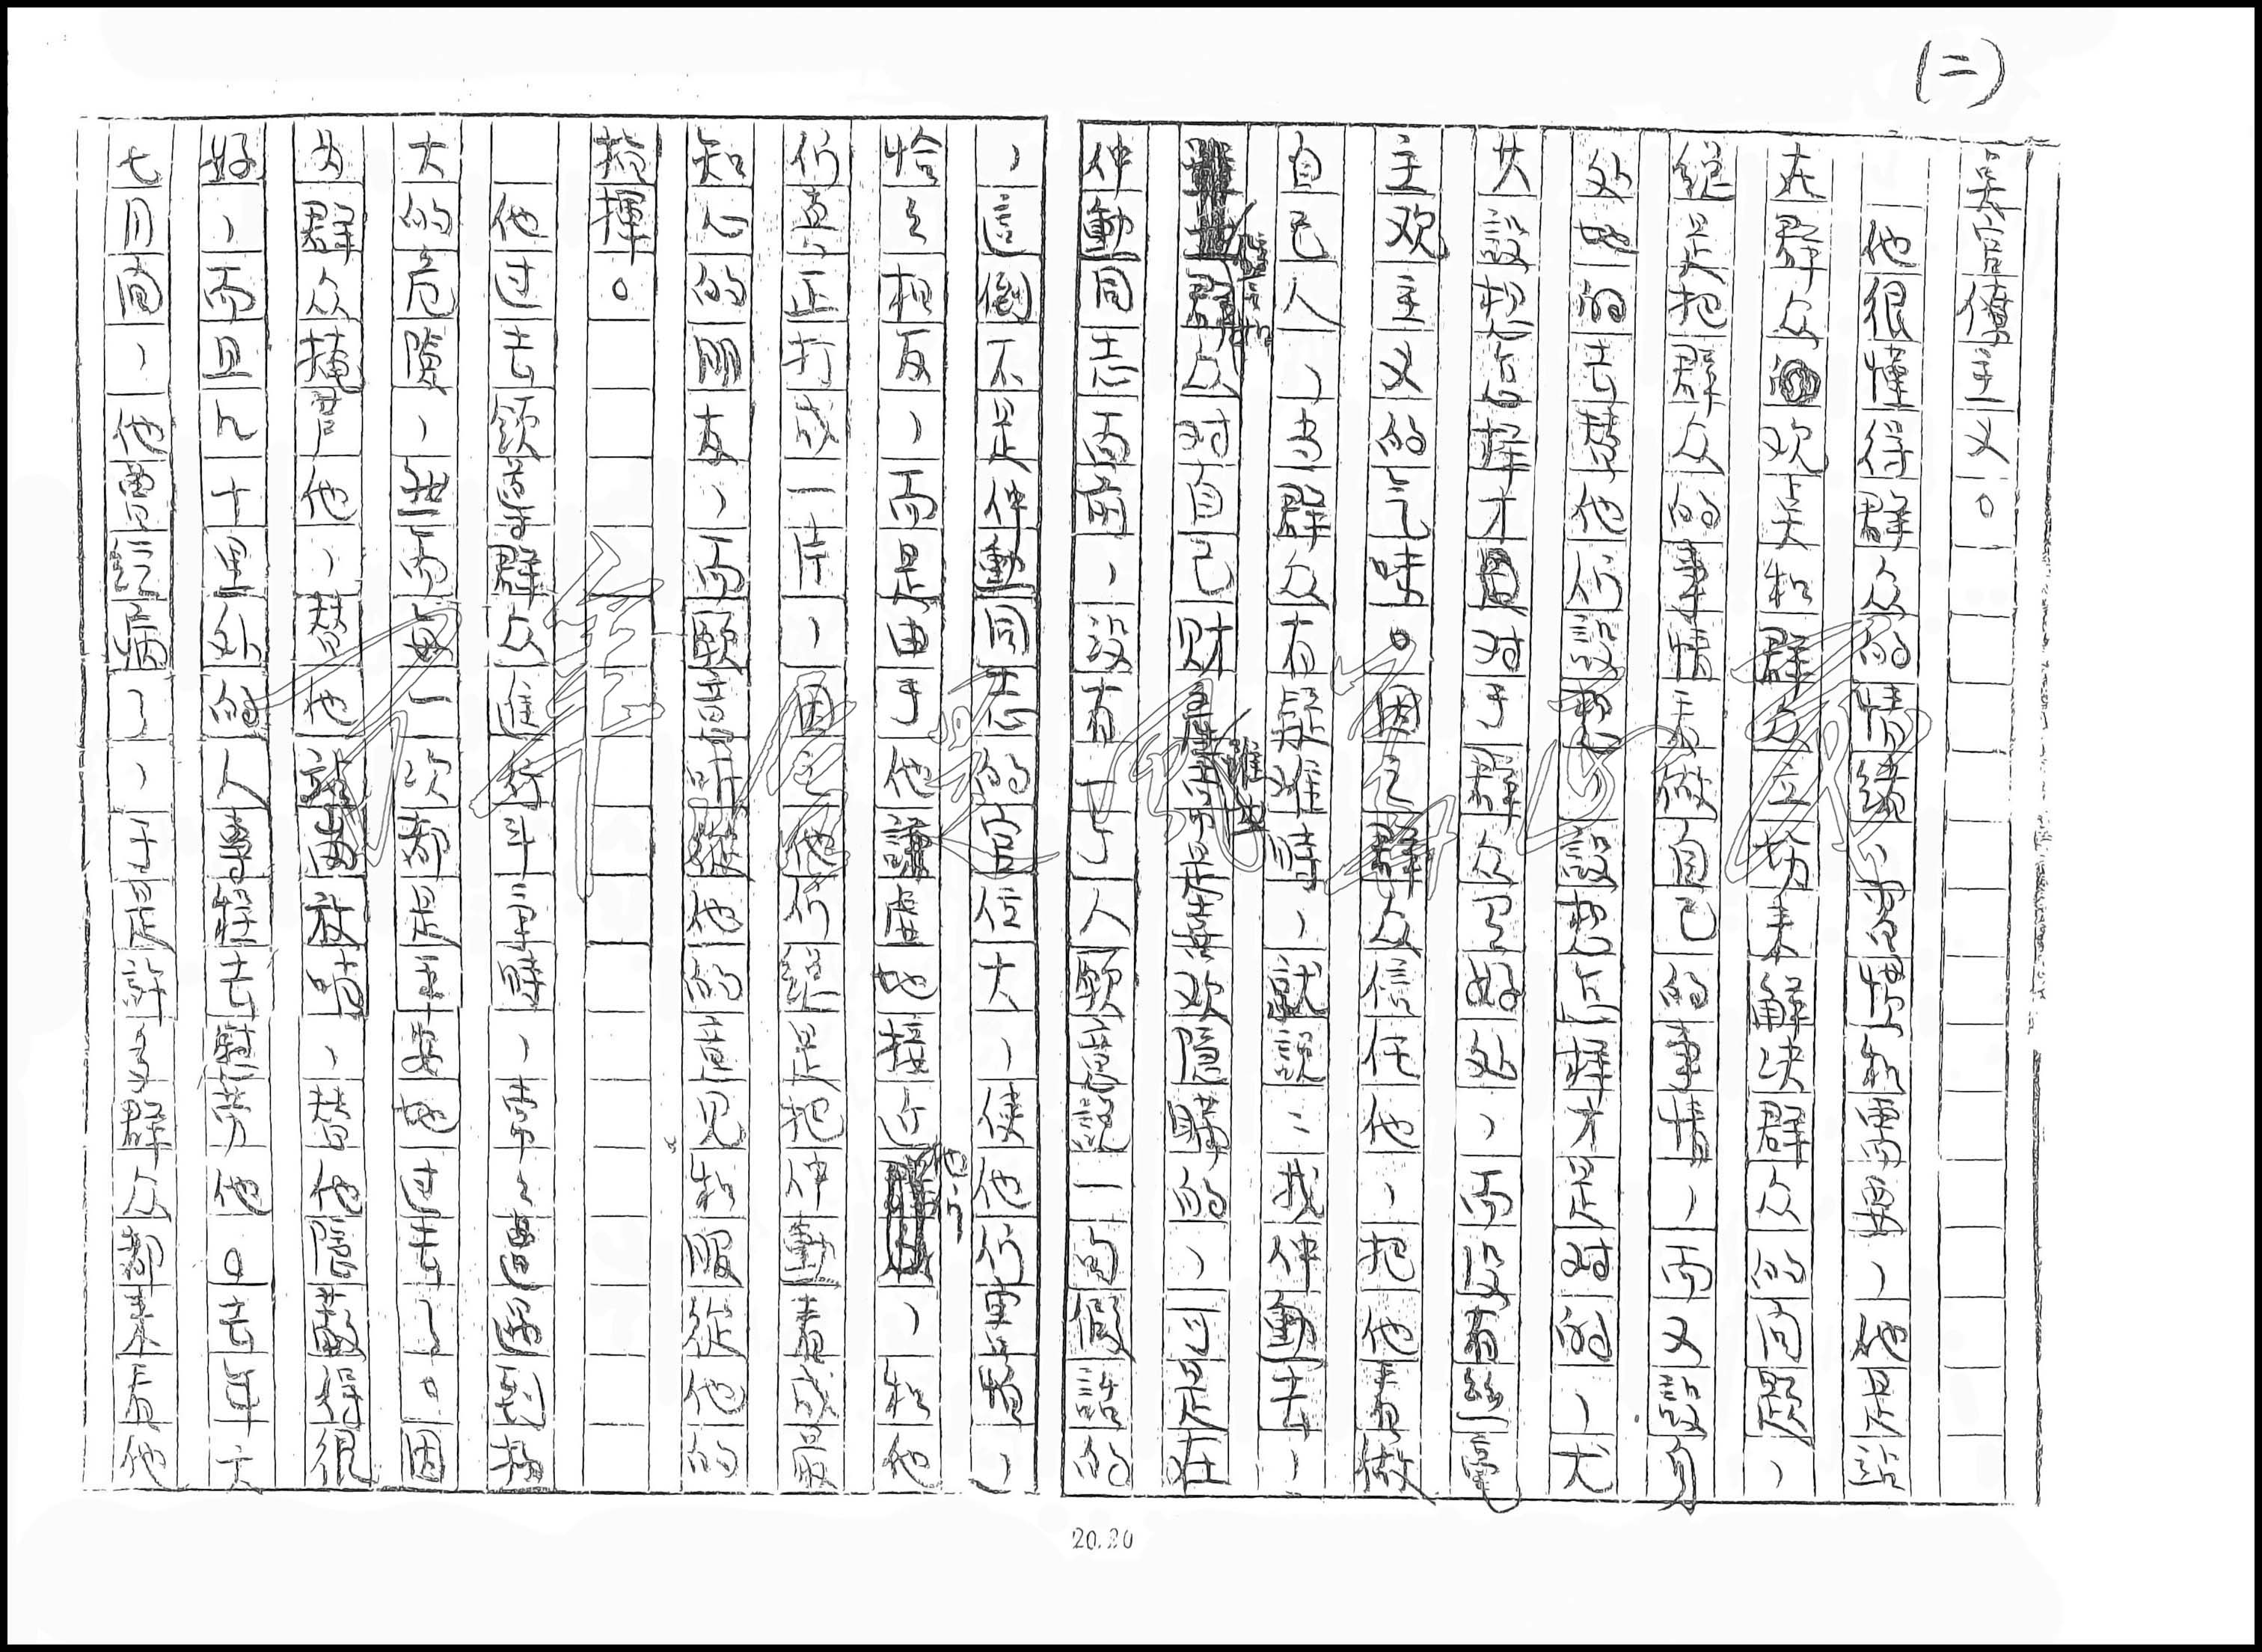 (二)
吴官僚主义。
他很懂得群众的情绪、習慣和需要，他是站
在群众的欢喜和群众立場来解决群众的问题，
總是把群众的事情来做自己的事情，而又設身
处地的去替他们設想，設想怎样才是对的，尤
其設想怎样才是对于群众有好处，而没有絲毫
主观主义的气味。因之群众信任他，把他看做
自己人，当群众有疑难時，就說：我仲勳去，
群众对自己财產都是喜欢隱瞒的，可是在
仲勳同志面前，没有一个人願意說一句假話的
，這倒不是仲勳同志的官位大，使他们畏惧，
恰々相反，而是由于他謙虚地接近他们，和他
们真正打成一片，因之他们總是把仲勳看成最
知心的朋友，而願意听從他的意見和服從他的
指揮。
他过去領導群众進行斗争時，常々遭遇到極
大的危險，然而每一次都是平安地过去了。因
为群众掩护他，替他站崗放哨，替他隐蔽得很
好，而且几十里外的人專程去慰劳他。去年六
七月间，他曾經病了，于是許多群众都来看他
20.20